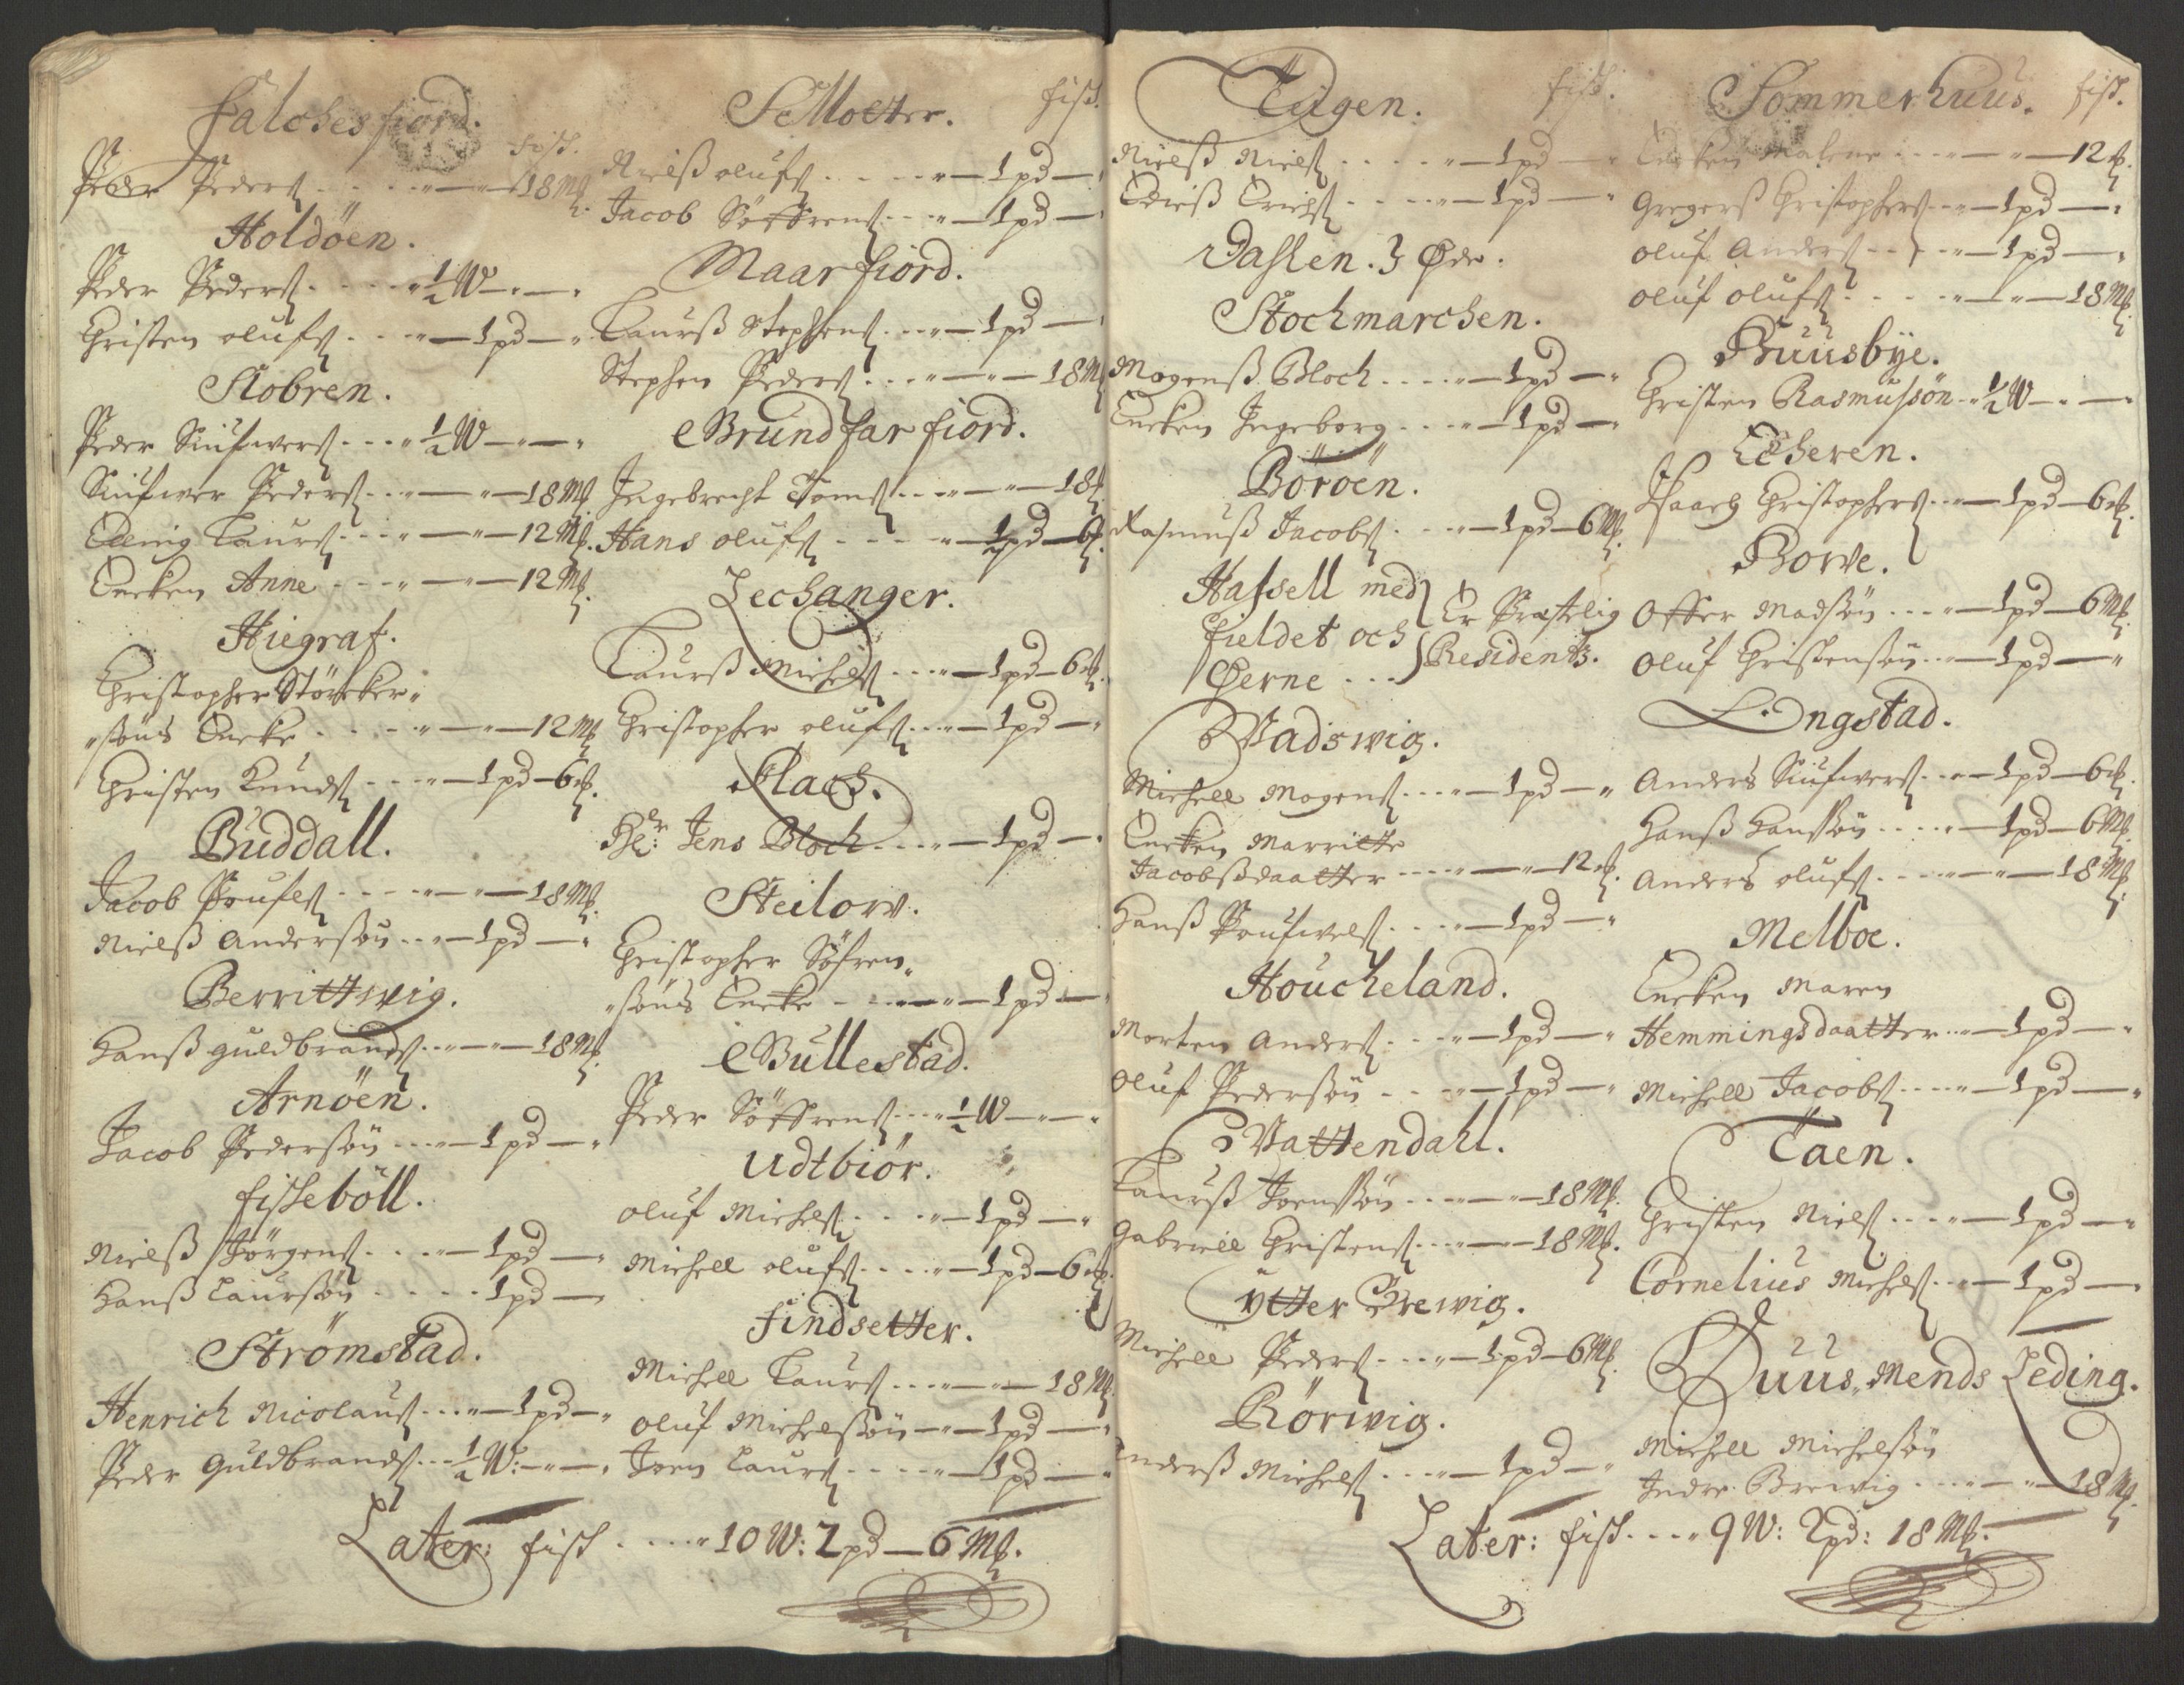 Falchesfiord.
fisk.
Peder Peders . . . . " — " — 18 Mk.
Holdöen.
Peder Peders . . . . " ½ W — " — "
Christen olufs . . . " — 1 pd — "
Slobren.
Peder Siufwers . . . " ½ W — " — "
Siufwer Peders . . . " — " — 18 Mk.
Lauers . . . " — " — 12 Mk.
Encken Anne . . . " — " — 12 Mk.
Hiegraf.
Christopher Störcker"
"søns Encke . . . . " — " — 12 Mk
Christen Knuds . . . " — 1 pd — 6 Mk.
Buddall.
Jacob Poufels . . . . " — " — 18 Mk.
Nielß Anderssön . . " — 1 pd — "
Berrittwig.
Hanß guldbrands . . . " — " — 18 Mk.
Arnöen.
Jacob Pederssön . . . " — 1 pd — "
fisseböll.
Nielß Jörgens . . . " — 1 pd — "
Hanß Laurssön . . . . . 1 pd —
Strömstad.
Henrich Nicolaus . . . " — 1 pd — "
Peder Guldbrands . . . ½ W: — " — "
Selloetter.
fisk.
Nielß olufs . . . . . " — 1 pd — "
Jacob Söffrens . . . " — 1 pd — "
Maarfiord.
Laurß Stephens . . . " — 1 pd — "
Stephen Peders . . . . " — " — 18 Mk
Brundfarfiord.
Ingebrecht Toms . . . " — " — 18
Hans olufs . . . . " — 1 pd — 6
Lechanger.
Laurß Michels . . . " — 1 pd — 6 Mk.
Christopher olufs . . . " — 1 pd — "
Slach.
Hr: Jens Bloch . . . . " — 1 pd — "
Steilow.
Christopher Söfren"
"søns Encke . . . . " — 1 pd — "
Bullestad.
Peder Söffrens . . . " ½ W — " — "
Udtbiör.
oluf Michels . . . . " — 1 pd — "
Michell olufs . . . . " — 1 pd — 6 Mk.
Findsetter.
Michell Laurs . . . . " — " — 18 Mk.
oluf Michelssön — " — 1 pd — "
Joen Laurs . . . . " — 1 pd — "
Later: fisk . . . . " 10 W: 2 pd — 6 Mk.
Tugen.
fisk.
Nielß Niels . . . . . " — 1 pd — "
Erichs . . . . . " — 1 pd — "
Daslen. 3 Øde.
Stochmarchen.
Mogenß Bloch . . . . " — 1 pd — "
Encken Ingeborg . . . " — 1 pd — "
Böröen.
Rasmuß Jacobs . . . . " — 1 pd — 6 Mk.
Hassell med
fieldet och
Gerne . . .
Er Prestelig
Residentz.
Vadswig.
Michell Mogens . . . . " — 1 pd — "
Encken Marritte
Jacobsdaatter . . . . " — " — 12 Mk.
Hanß Poufwels . . . . " — 1 pd — "
Houcheland.
Morten Anders . . . . " — 1 pd — "
Oluf Pederssön . . . " — 1 pd — "
Vattendahl.
Laurß Joenssön . . . . " — " — 18 Mk.
Gabriell Christens . . . " — " — 18 Mk.
Ytter Brewig.
Michell Peders . . . . " — 1 pd — 6 Mk.
Rörwig.
Anderß Michels . . . . " — 1 pd — "
Sommerhuus.
fisk.
Encken Malene . . . . — " — 12 Mk.
Gregerß Christophers . . " — 1 pd — "
oluf Anders . . . . " — 1 pd — "
oluf olufs . . . . . " — " — 18 Mk.
Bruusbye.
Christen Rasmussön . . " ½ W — " — "
Echeren.
Isaach Christophers . . . " — 1 pd — 6 Mk.
Bowe.
Offer Madsön . . . . " — 1 pd — 6 Mk.
oluf Christensön . . . " — 1 pd — "
Engstad.
Anders Siufwers . . . " — 1 pd — 6 Mk.
Hanß Hanssön . . . . " — 1 pd — 6 Mk.
Anders olufs . . . . " — " — 18 Mk.
Melboe.
Encken Maren
Hemmingsdaatter . . " — 1 pd — "
Michell Jacobs . . . . " — 1 pd — "
Taen.
Christen Niels . . . . " — 1 pd — "
Cornelius Michels . . " — 1 pd — "
Huus Mends Leding.
Michell Michelsön
Indre Brewig . . . . " — " — 18 Mk.
Later: fisk . . . . " 9 W: 2 pd: 18 Mk.